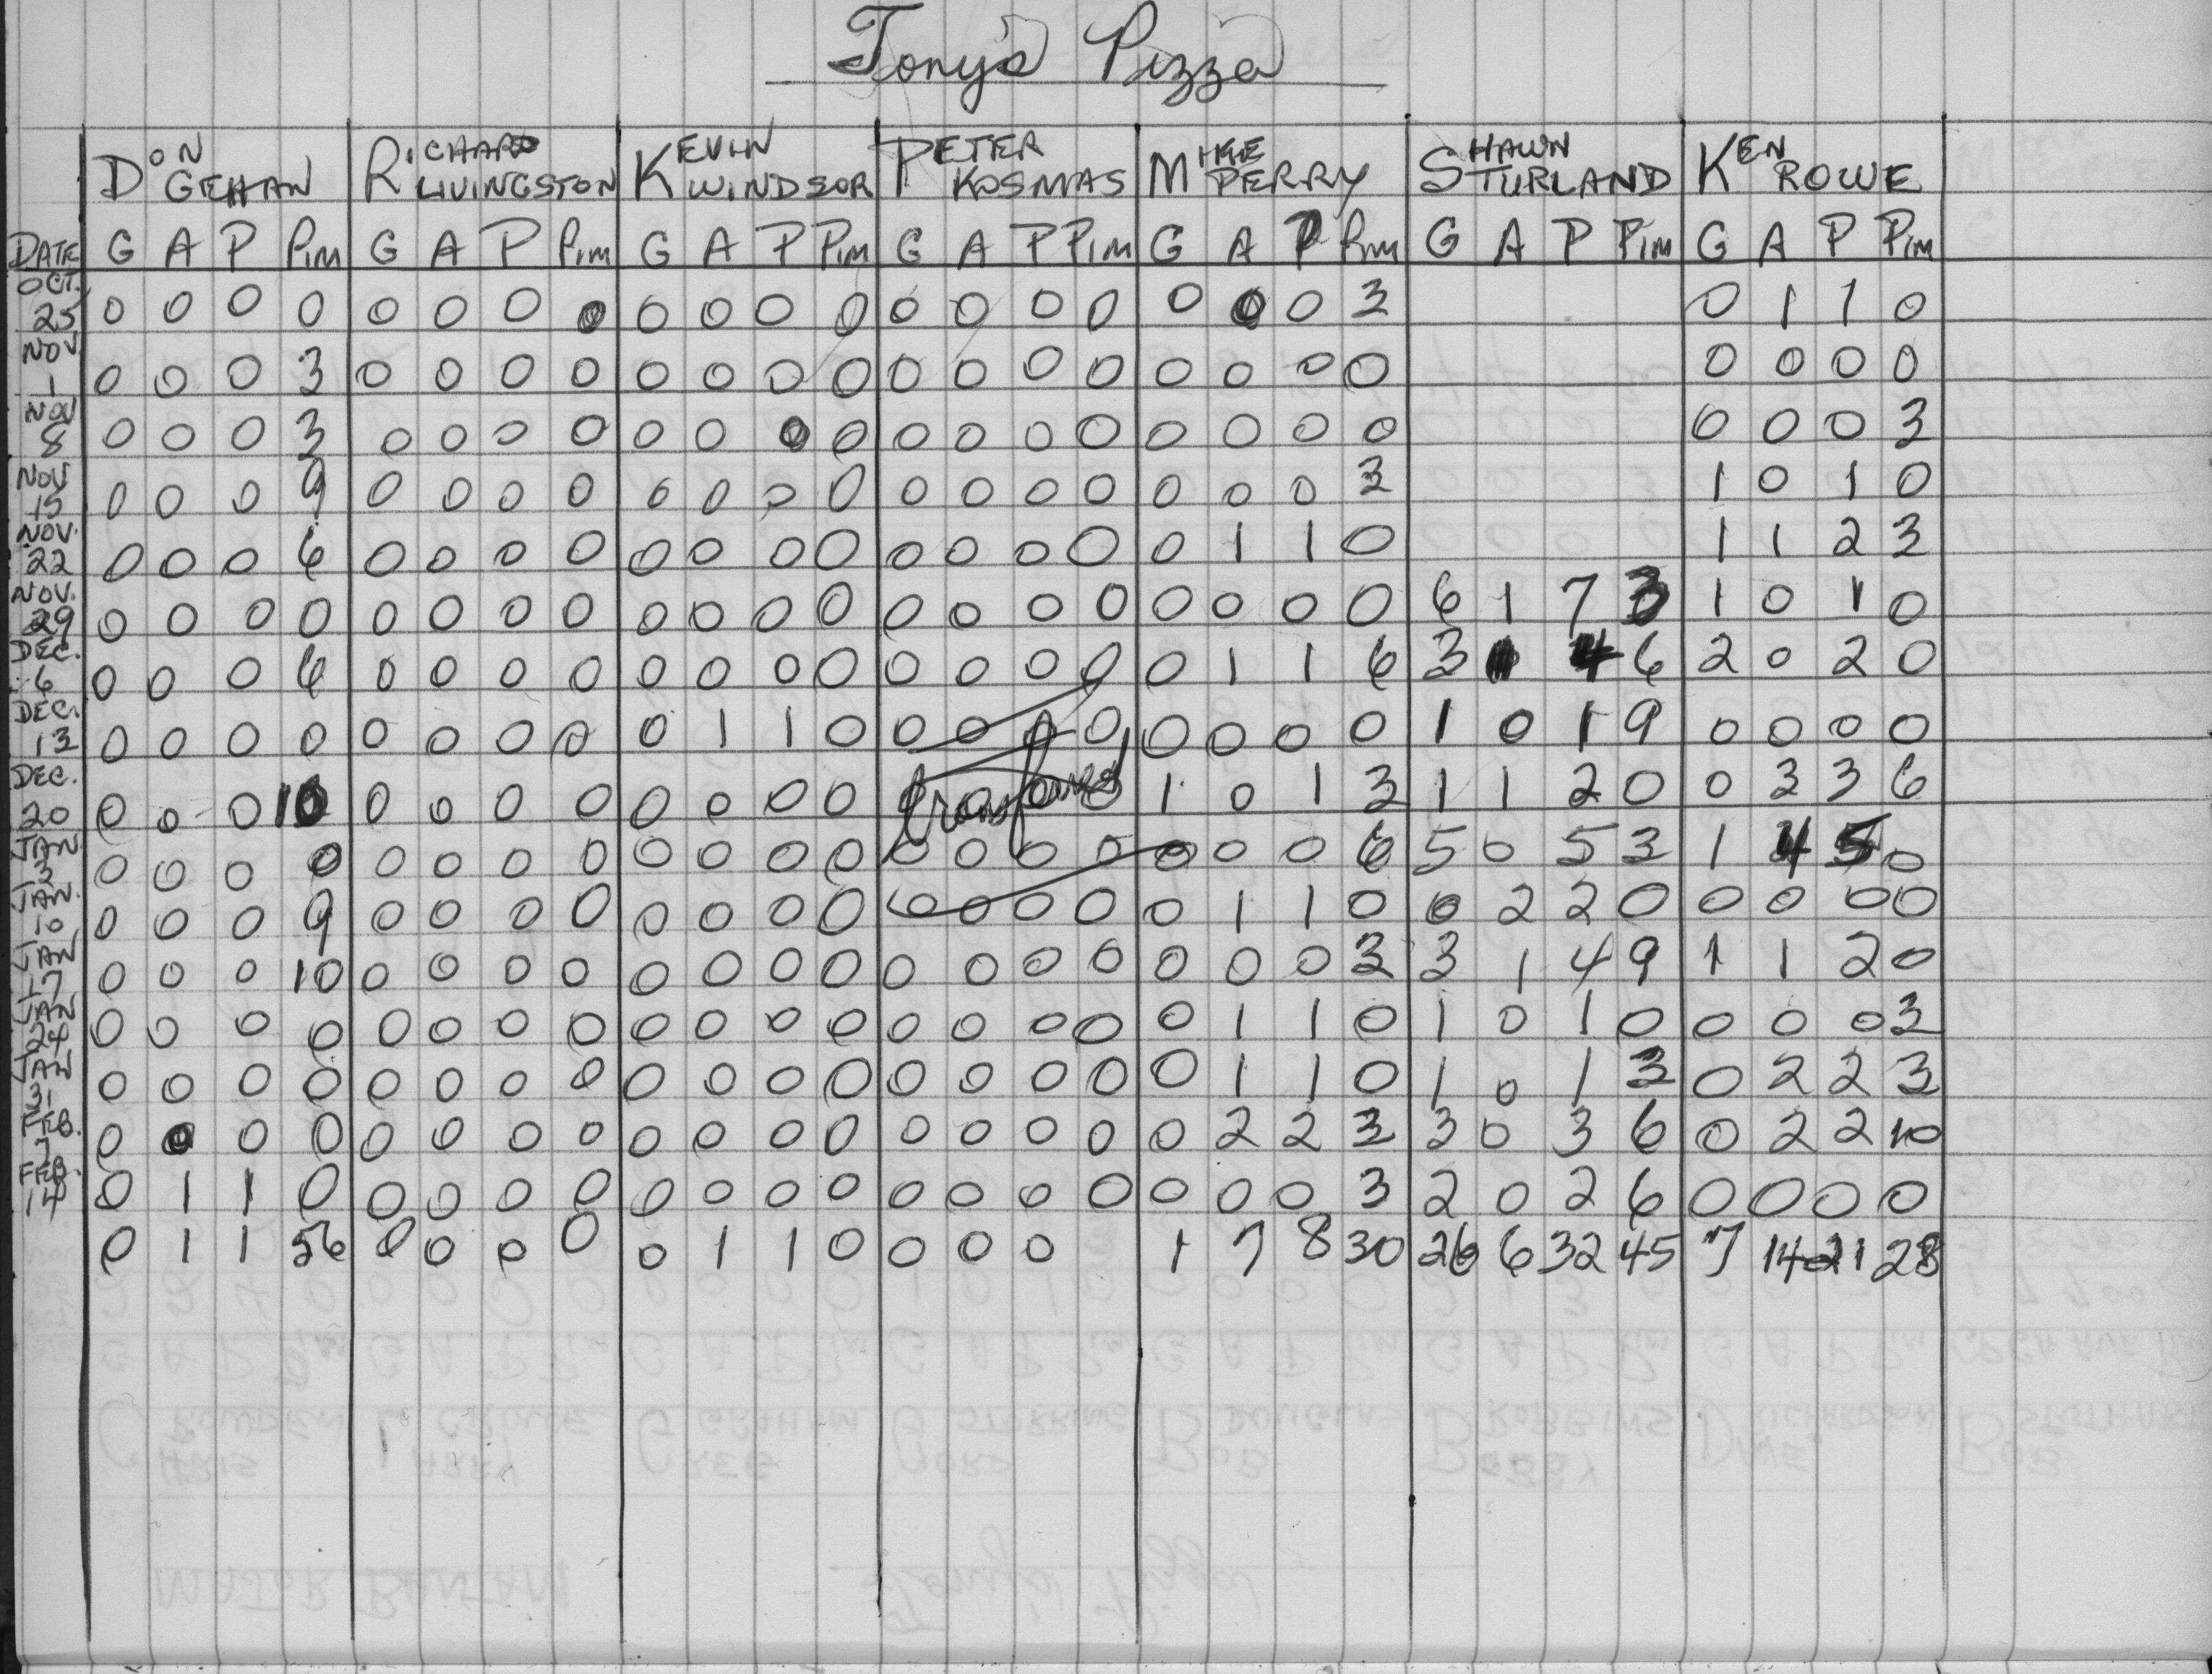 Tony's Pizza
DON GEHAN RICHARD LIVINGSTON KEVIN WINDSOR PETER KOSMAS MIKE PERRY SHAWN TURLAND KEN ROWE
DATE G A P PIM G A P PIM G A P PIM G A P PIM G A P PIM G A P PIM G A P PIM
OCT. 25 0 0 0 0 0 0 0 0 0 0 0 0 0 0 0 0 0 0 0 3 0 1 1 0
NOV 1 0 0 0 3 0 0 0 0 0 0 0 0 0 0 0 0 0 0 0 0 0 0 0 0
NOV 8 0 0 0 3 0 0 0 0 0 0 0 0 0 0 0 0 0 0 0 0 0 0 0 3
NOV 15 0 0 0 9 0 0 0 0 0 0 0 0 0 0 0 0 0 0 0 3 1 0 1 0
NOV. 22 0 0 0 6 0 0 0 0 0 0 0 0 0 0 0 0 0 1 1 0 1 1 2 3
NOV. 29 0 0 0 0 0 0 0 0 0 0 0 0 0 0 0 0 0 0 0 0 6 1 7 3 1 0 1 0
DEC. 6 0 0 0 6 0 0 0 0 0 0 0 0 0 0 0 0 0 1 1 6 3 1 4 6 2 0 2 0
DEC. 13 0 0 0 0 0 0 0 0 0 1 1 0 0 0 0 0 0 0 0 0 1 0 1 9 0 0 0 0
DEC. 20 0 0 0 10 0 0 0 0 0 0 0 0 transferred 1 0 1 3 1 1 2 0 0 3 3 6
JAN 3 0 0 0 0 0 0 0 0 0 0 0 0 0 0 0 0 0 0 0 6 5 0 5 3 1 4 5 0
JAN. 10 0 0 0 9 0 0 0 0 0 0 0 0 0 0 0 0 0 1 1 0 0 2 2 0 0 0 0 0
JAN 17 0 0 0 10 0 0 0 0 0 0 0 0 0 0 0 0 0 0 0 3 3 1 4 9 1 1 2 0
JAN 24 0 0 0 0 0 0 0 0 0 0 0 0 0 0 0 0 0 1 1 0 1 0 1 0 0 0 0 3
JAN 31 0 0 0 0 0 0 0 0 0 0 0 0 0 0 0 0 0 1 1 0 1 0 1 3 0 2 2 3
FEB. 7 0 0 0 0 0 0 0 0 0 0 0 0 0 0 0 0 0 2 2 3 3 0 3 6 0 2 2 10
FEB. 14 0 1 1 0 0 0 0 0 0 0 0 0 0 0 0 0 0 0 0 3 2 0 2 6 0 0 0 0
0 1 1 56 0 0 0 0 0 1 1 0 0 0 0 1 7 8 30 26 6 32 45 7 14 21 28